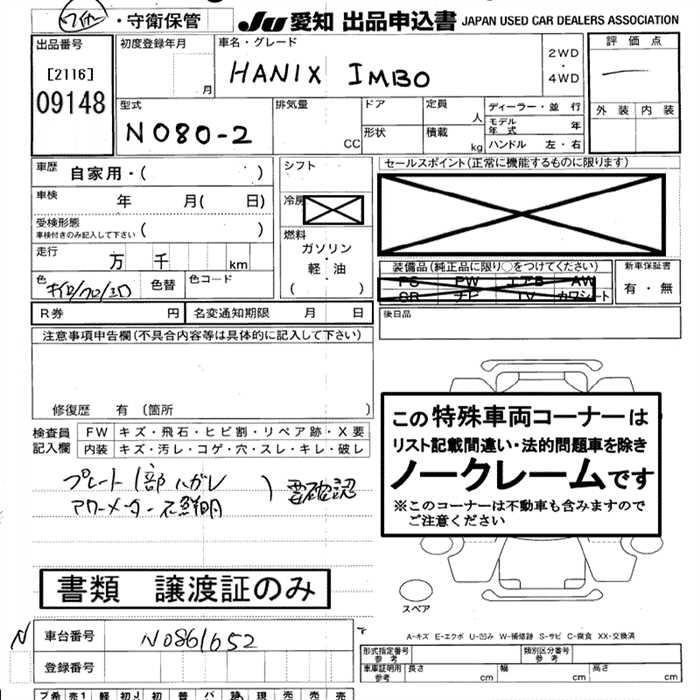 ・守衛保管
JU 愛知 出品申込書 JAPAN USED CAR DEALERS ASSOCIATION
出品番号
[2116]
09148
初度登録年月
月
車名・グレード
HANIX IMBO
2WD
・
4WD
評価点
外装 内装
型式
N080-2
排気量
CC
ドア
形状
定員
人
積載
kg
ディーラー・並行
モデル年式 年
ハンドル 左・右
車歴 自家用・( )
車検 年 月( 日)
受検形態
車検付きのみ記入して下さい ( )
走行 万 千 km
色
色替
色コード
シフト
冷房
燃料
ガソリン
軽・油
( )
セールスポイント(正常に機能するものに限ります)
装備品(純正品に限り○をつけてください)
PS PW エアB AW
SR ナビ TV カワシート
新車保証書
有・無
後日品
R券 円 名変通知期限 月 日
注意事項申告欄(不具合内容等は具体的に記入して下さい)
修復歴 有(箇所 )
検査員
記入欄
FW キズ・飛石・ヒビ割・リペア跡・X要
内装 キズ・汚レ・コゲ・穴・スレ・キレ・破レ
プレート1部ハガレ
アワーメーター不鮮明
要確認
この特殊車両コーナーは
リスト記載間違い・法的問題車を除き
ノークレームです
※このコーナーは不動車も含みますので
ご注意ください
スペア
書類 譲渡証のみ
N
車台番号 N0861652
登録番号
A-キズ E-エクボ U-凹み W-補修跡 S-サビ C-腐食 XX-交換済
形式指定番号
参考
類別区分番号
参考
車庫証明用
参考
長さ cm 幅 cm 高さ cm